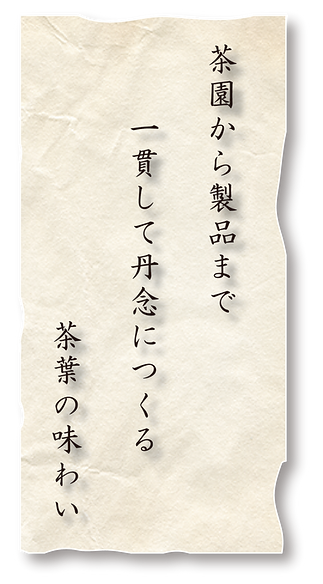 茶園から製品まで
一貫して丹念につくる
茶葉の味わい